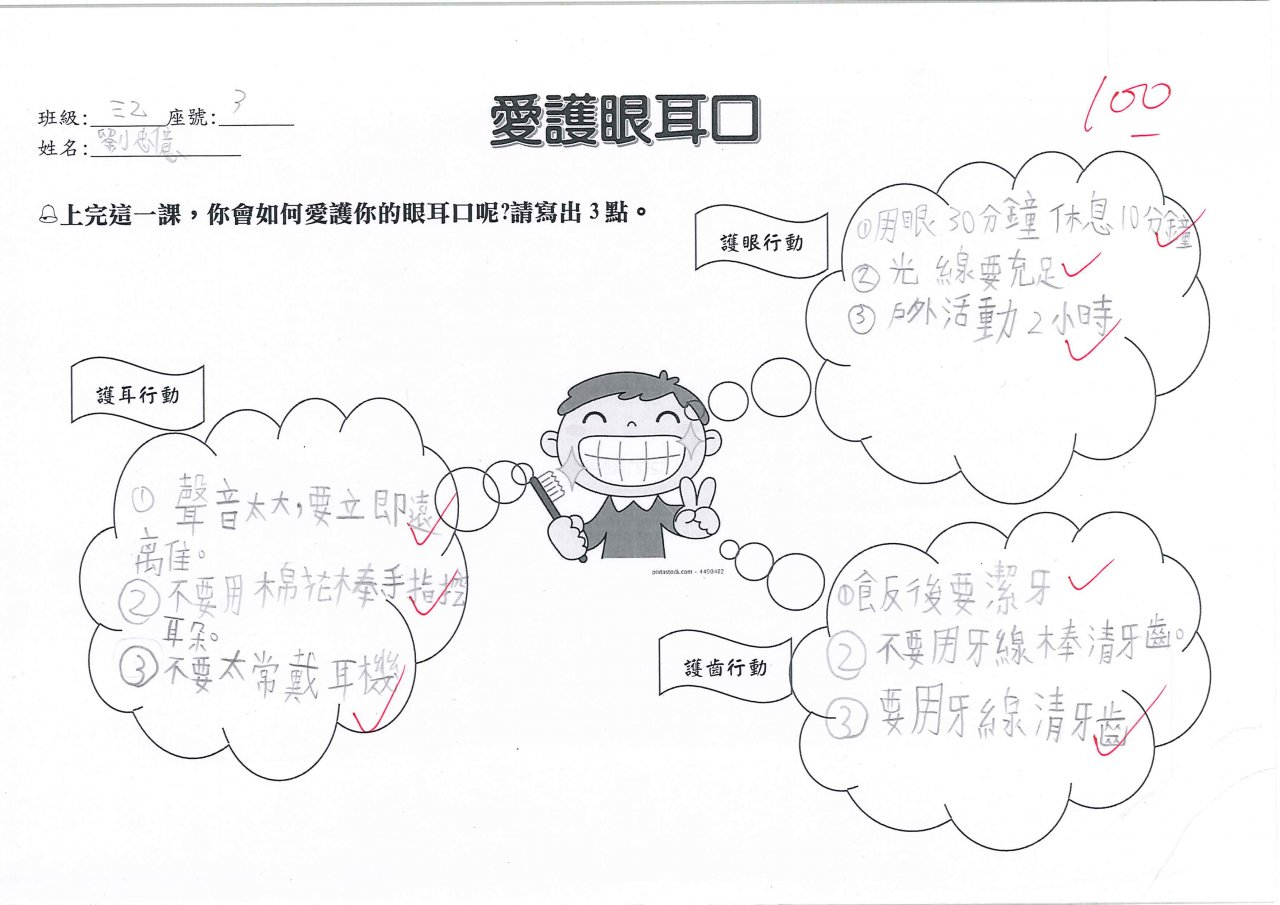 愛護眼耳口
100
班級:三乙 座號:3
姓名:劉忠億
上完這一課，你會如何愛護你的眼耳口呢?請寫出3點。
護眼行動
①用眼30分鐘休息10分鐘
②光線要充足
③戶外活動2小時
護耳行動
①聲音太大,要立即遠
离隹。
②不要用棉花棒手指挖
耳朵。
③不要太常戴耳機
pixtastock.com - 4490482
護齒行動
①飯後要潔牙
②不要用牙線棒清牙齒。
③要用牙線清牙齒